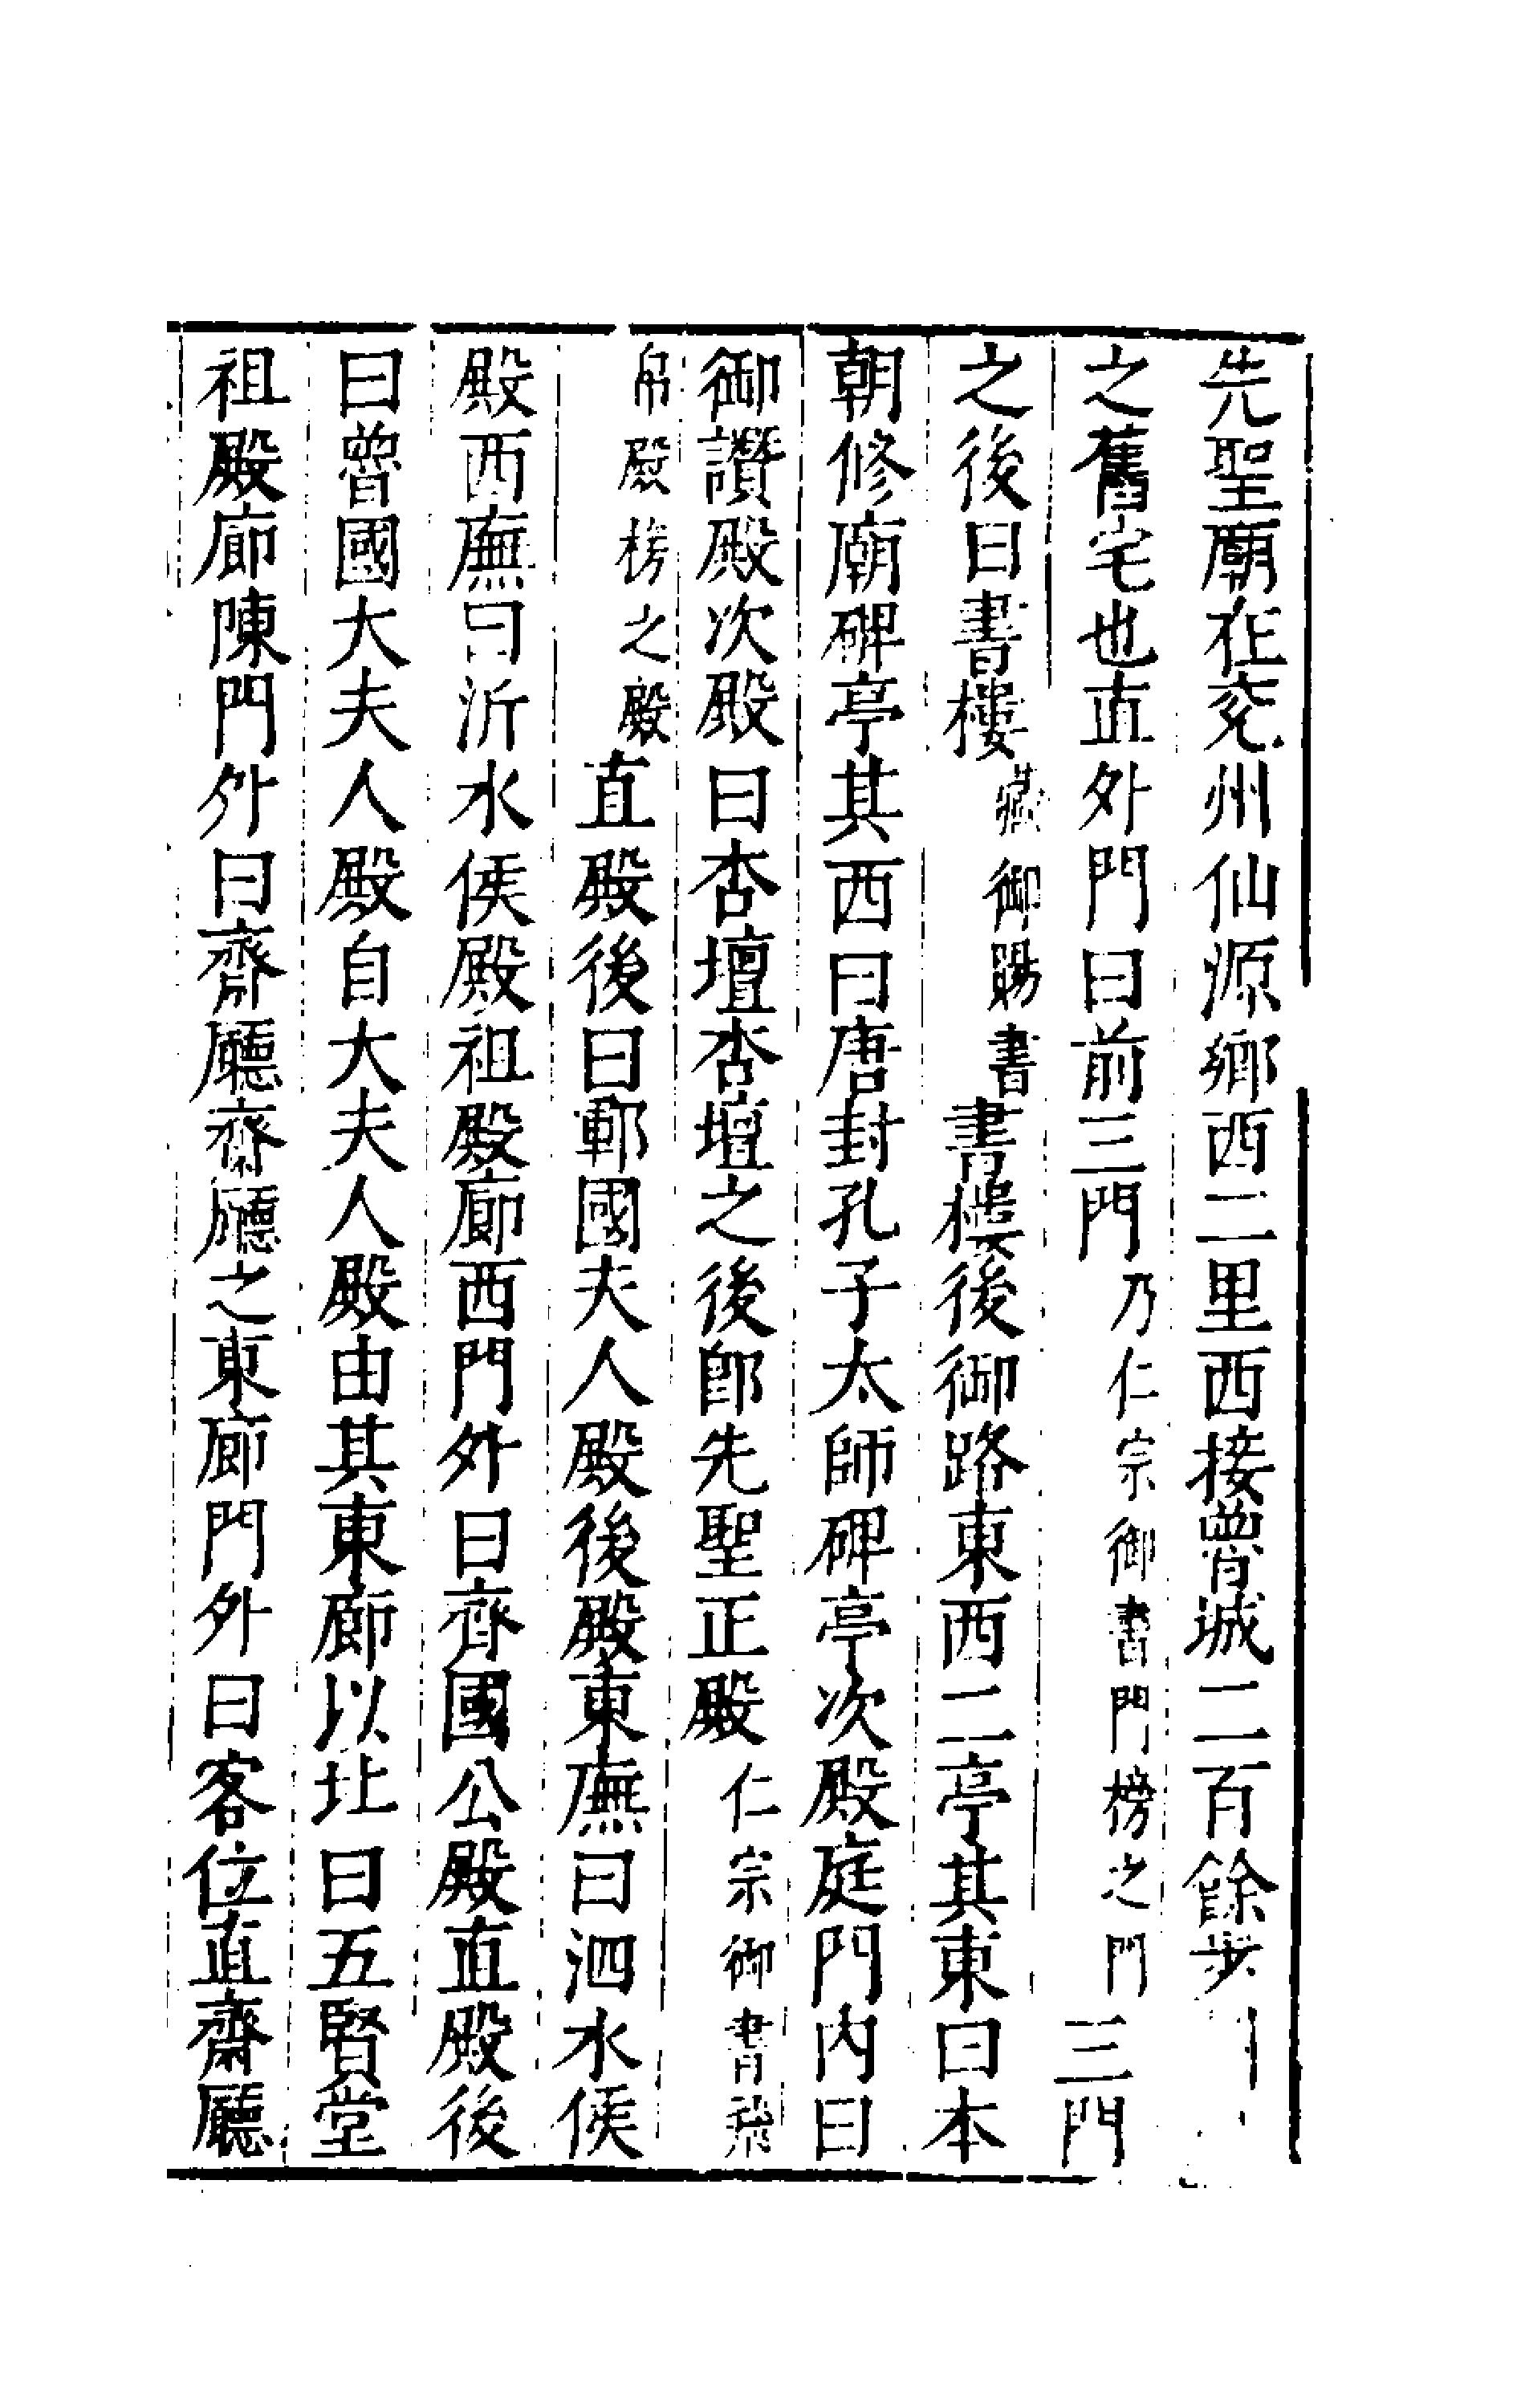 先聖廟在兗州仙源鄉西二里西接魯城二百餘步
之舊宅也直外門曰前三門乃仁宗御書門榜之門三門
之後曰書樓藏御賜書書樓後御路東西二亭其東曰本
朝修廟碑亭其西曰唐封孔子太師碑亭次殿庭門內曰
御讚殿次殿曰杏壇杏壇之後即先聖正殿仁宗御書飛
帛殿榜之殿直殿後曰鄆國夫人殿後殿東廡曰泗水侯
殿西廡曰沂水侯殿祖殿廊西門外曰齊國公殿直殿後
曰魯國大夫人殿自大夫人殿由其東廊以北曰五賢堂
祖殿廊陳門外曰齋廳齋廳之東廊門外曰客位直齋廳